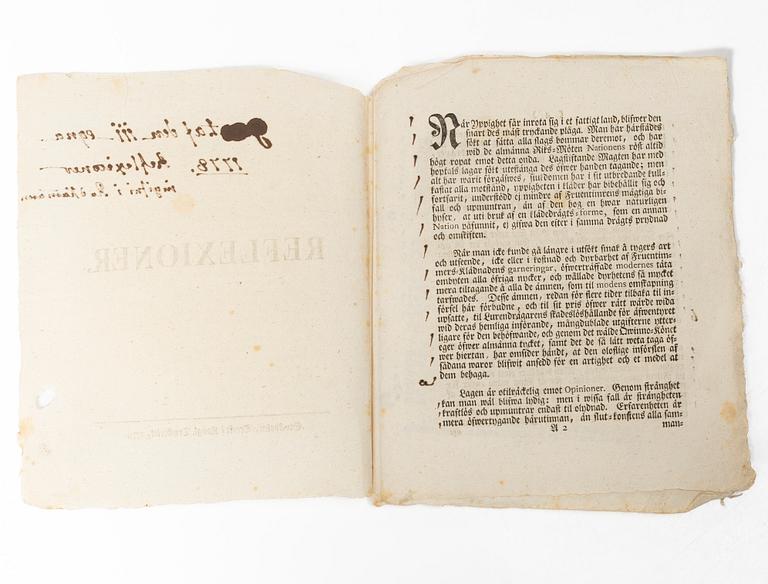 REFLEXIONER.
När Yppighet får inrota sig i et fattigt land, blifwer den
snart des mäst tryckande plåga. Man har härstädes
sökt at sätta alla slags bommar deremot, och har
wid de almänna Riks-Möten Nationens röst altid
högt ropat emot detta onda. Lagstiftande Magten har med
hoptals lagar sökt utestänga des öfwer handen tagande; men
alt har warit förgäfwes, fåfängan har i sit utbredande kull-
kastat alla motstånd, yppigheten i kläder har bibehållit sig och
fortfarit, understödd ej mindre af Fruentimrens mägtiga bi-
fall och upmuntran, än af den hog en hwar naturligen
hyser, at uti bruk af en klädedrägts-forme, som en annan
Nation påfunnit, ej gifwa den efter i samma drägts prydnad
och omskiften.
När man icke kunde gå längre i utsökt smak å tygers art
och utseende, icke eller i kostnad och dyrbarhet af Fruentim-
mers-Klädnadens garneringar, öfwerträffade modernes täta
ombyten alla öfriga nycker, och wållade dyrhetens så mycket
mera tiltagande å alla de ämnen, som til modens omskapning
tarfwades. Desse ämnen, redan för flere tider tilbaka til in-
försel här förbudne, och til sit pris öfwer rätt wärde wida
upsatte, til Lurendrägarens skadeslöshållande för äfwentyret
wid deras hemliga införande, mångdublade utgifterne ytter-
ligare för den behöfwande, och genom det wälde Qwinno-Könet
eger öfwer almänna tycket, samt det de så lätt weta taga öf-
wer hiertan, har omsider händt, at den oloflige införslen af
sådana waror blifwit ansedd för en artighet och et medel at
dem behaga.
Lagen är otilräckelig emot Opinioner. Genom stränghet
kan man wäl blifwa lydig: men i wissa fall är strängheten
kraftlös och upmuntrar endast til olydnad. Erfarenheten är
mera öfwertygande härutinnan, än slut-konstens alla sam-
A 2
man-
1778.
Reflexioner